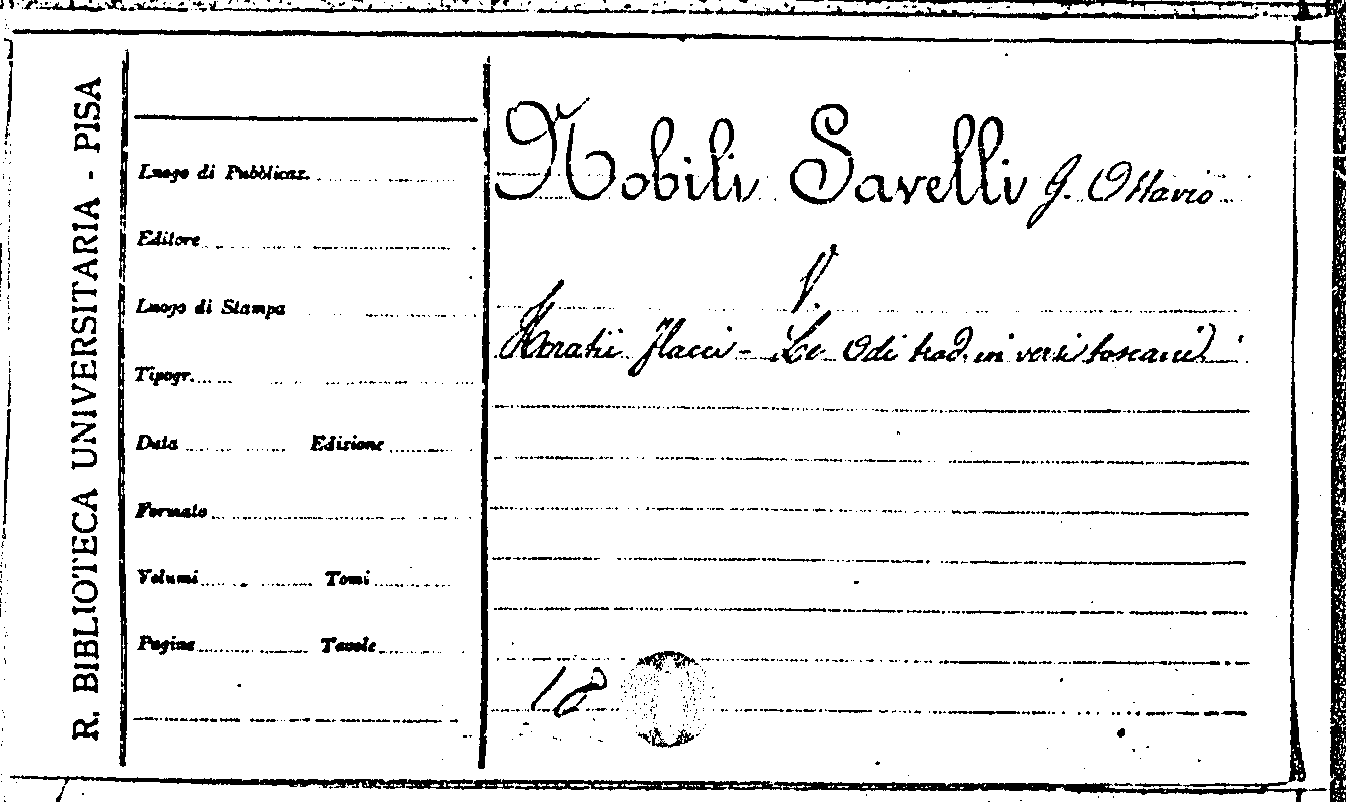 R. BIBLIOTECA UNIVERSITARIA - PISA
Luogo di Pubblicaz.
Editore
Luogo di Stampa
Tipogr.
Data Edizione
Formato
Volumi Tomi
Pagine Tavole
Nobili Savelli G. Ottavio
V.
Horatii Flacci - Le Odi trad. in versi toscani